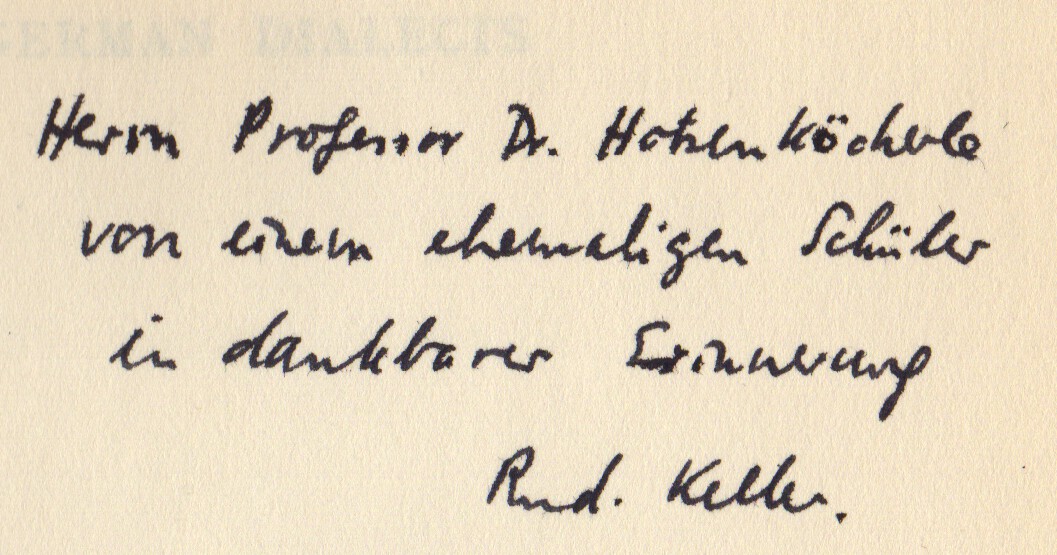 GERMAN DIALECTS
Herrn Professor Dr. Hotzenköcherle
von einem ehemaligen Schüler
in dankbarer Erinnerung
Rud. Keller.